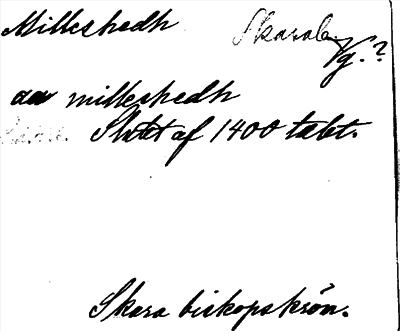 Milleshedh Skarab.
Vg.?
aa milleshedh
Slutet af 1400 talet.
Skara biskopskrön.